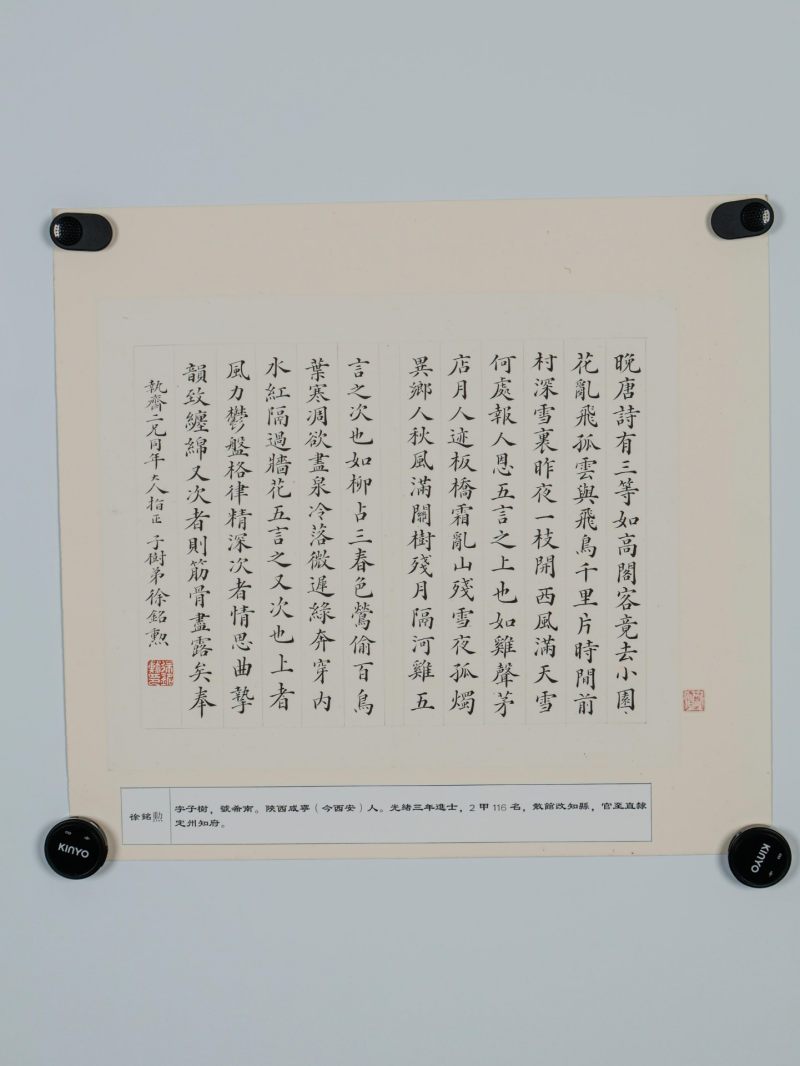 晚唐詩有三等如高閣客竟去小園
花亂飛孤雲與飛鳥千里片時間前
村深雪裏昨夜一枝開西風滿天雪
何處報人恩五言之上也如雞聲茅
店月人迹板橋霜亂山殘雪夜孤燭
異鄉人秋風滿關樹殘月隔河雞五
言之次也如柳占三春色鶯偷百鳥
葉寒凋欲盡泉冷落微遲綠奔穿內
水紅隔過牆花五言之又次也上者
風力鬱盤格律精深次者情思曲摯
韻致纏綿又次者則筋骨盡露矣奉
執齋二兄同年大人指正 子樹弟徐銘勳
徐銘勳
字子樹，號希南。陝西咸寧（今西安）人。光緒三年進士，2 甲 116 名，散館改知縣，官至直隸
定州知府。
KINYO
KINYO